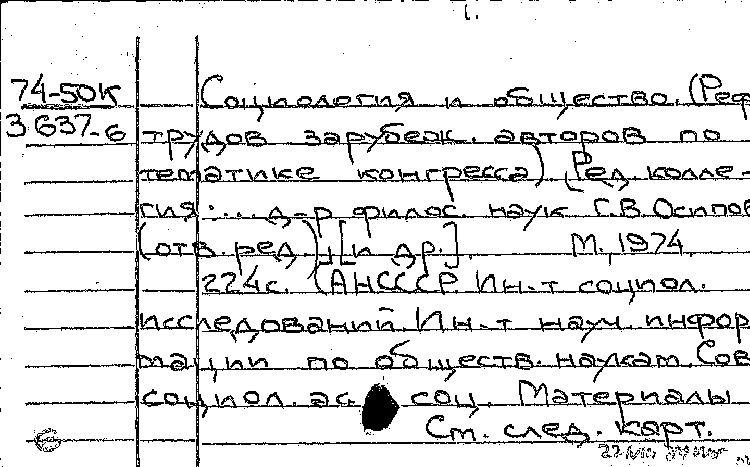 1.
74-50К Социология и общество. (Реф.
3637-6 трудов зарубеж. авторов по
тематике конгресса) [Ред. колле-
гия: ... д-р филос. наук Г.В. Осипов
(отв. ред) [и др.]. М., 1974.
224с. (АН СССР. Ин-т социол.
исследований. Ин-т науч. инфор
мации по обществ. наукам. Сов
социол. ас соц. Материалы
См. след. карт.